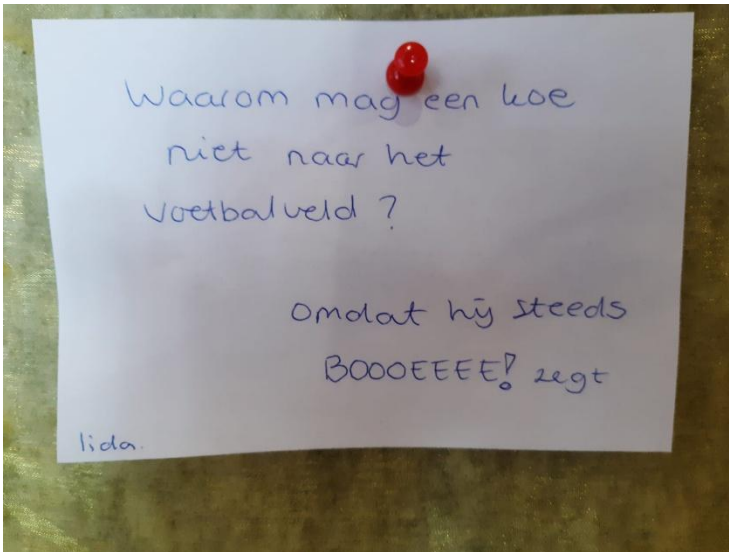 Waarom mag een koe
niet naar het
voetbalveld ?
omdat hij steeds
BOOOEEEE! zegt
lida.